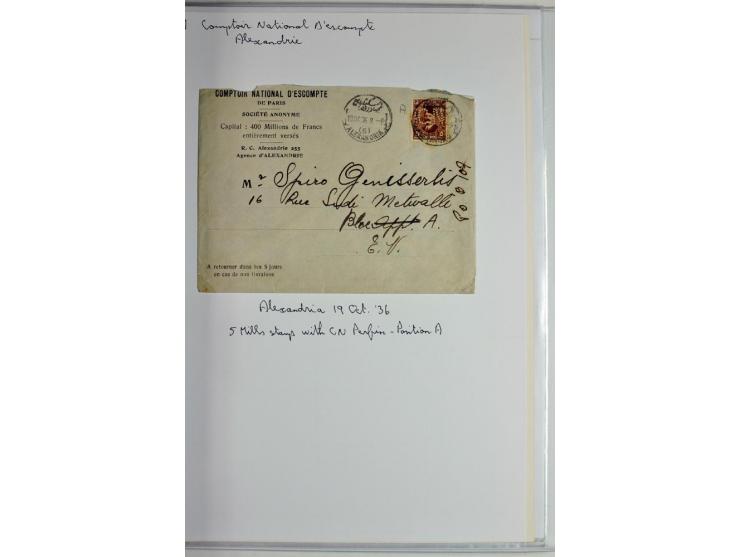 Comptoir National D'escompte
Alexandrie
COMPTOIR NATIONAL D'ESCOMPTE
DE PARIS
SOCIÉTÉ ANONYME
Capital : 400 Millions de Francs
entièrement versés
R. C. Alexandrie 255
Agence d'ALEXANDRIE
ALEXANDRIA
Mr Spiro Genisserlis
16 Rue Sidi Metwalli
Bloc App. A.
E. V.
A retourner dans les 5 jours
en cas de non livraison
Alexandria 19 Oct. '36
5 Mills stamp with CN Perfin - Position A